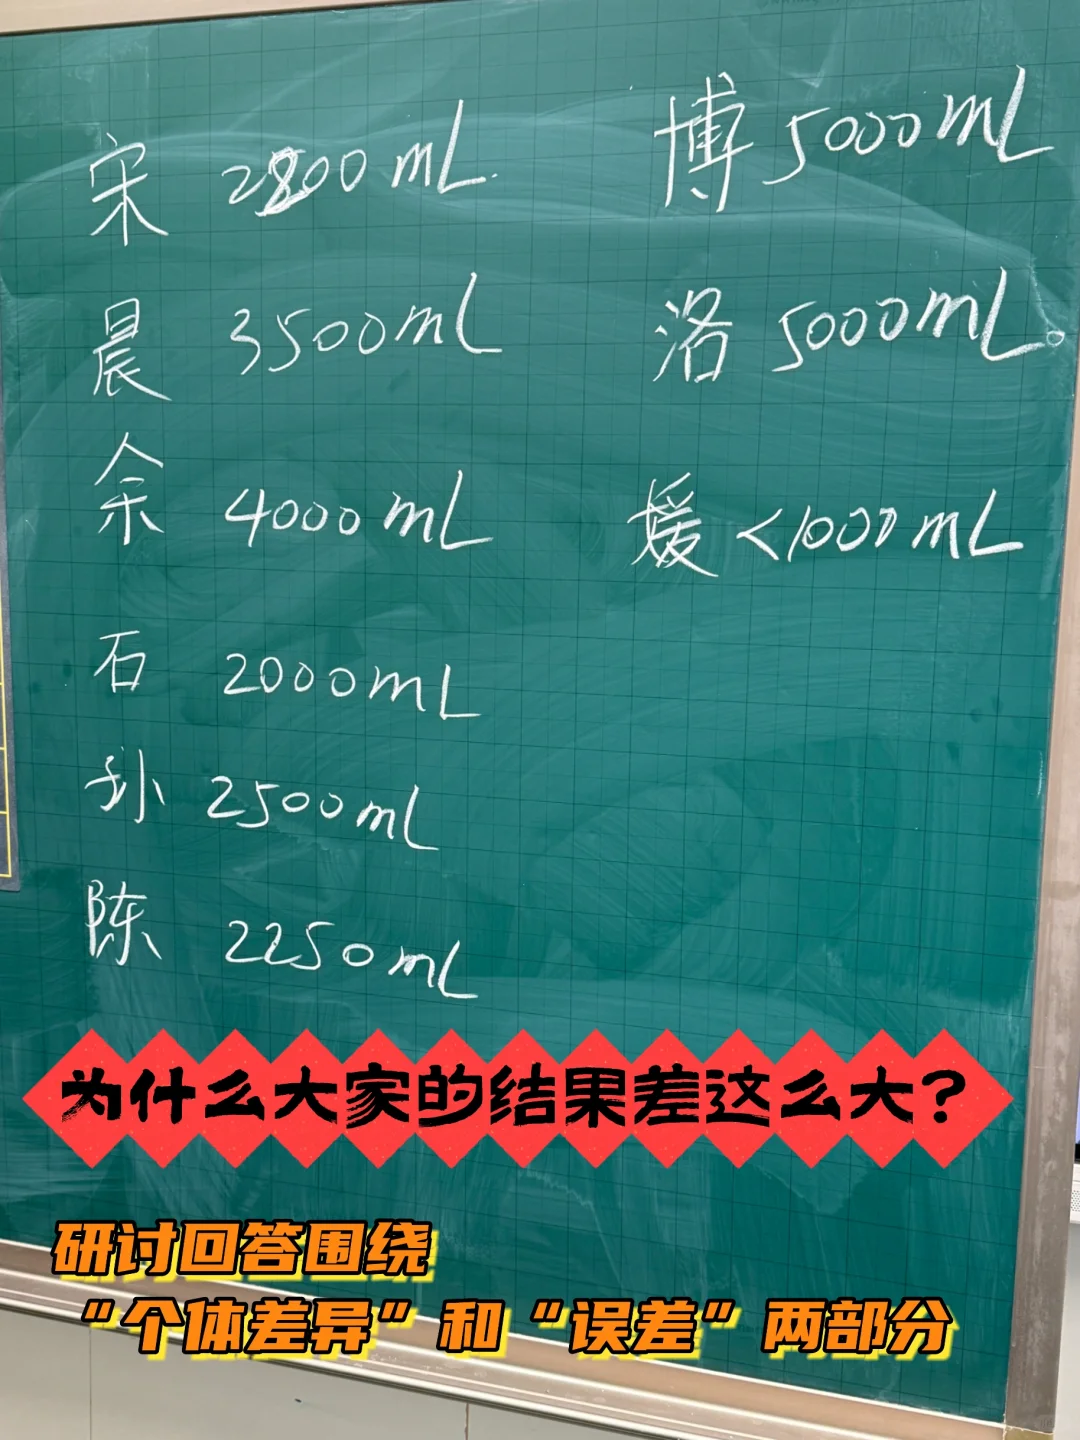 宋 2800mL.
晨 3500mL
余 4000mL
石 2000mL
孙 2500mL
陈 2250mL
博 5000mL
洛 5000mL。
媛 <1000mL
为什么大家的结果差这么大?
研讨回答围绕
“个体差异”和“误差”两部分